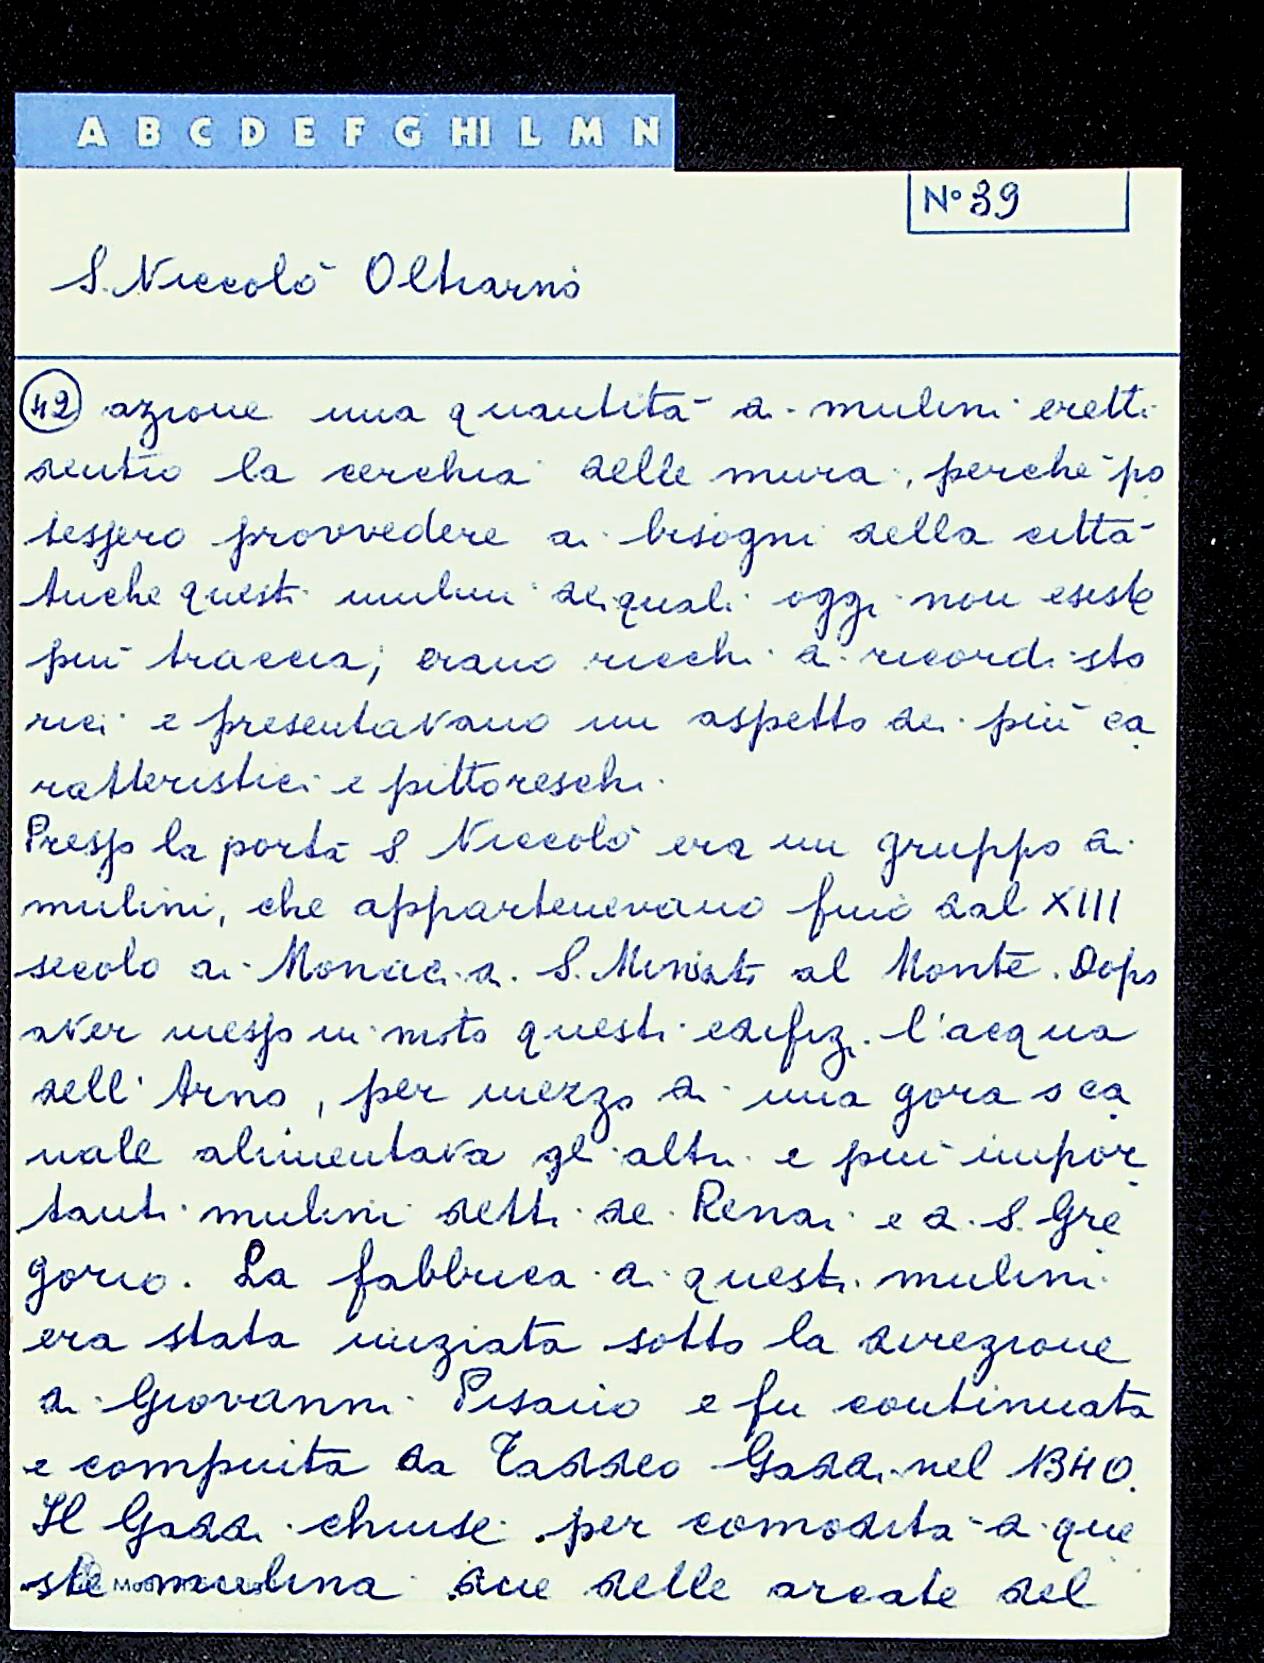 A B C D E F G HI L M N
N° 39
S. Niccolò Oltrarno
42 azione una quantità di mulini eretti
dentro la cerchia delle mura, perché po
tessero provvedere ai bisogni della città
Anche questi mulini dei quali oggi non esiste
più traccia, erano ricchi di ricordi sto
rici e presentavano un aspetto dei più ca
ratteristici e pittoreschi.
Presso la porta S. Niccolò era un gruppo di
mulini, che appartenevano fino dal XIII
secolo ai Monaci di S. Miniato al Monte. Dopo
aver messo in moto questi edifizi l'acqua
dell'Arno, per mezzo di una gora o ca
nale alimentava gli altri e più impor
tanti mulini detti dei Renai e di S. Gre
gorio. La fabbrica di questi mulini
era stata iniziata sotto la direzione
di Giovanni Pisano e fu continuata
e compiuta da Taddeo Gaddi nel 1340.
Il Gaddi chiuse per comodità di que
ste mulina due delle arcate del